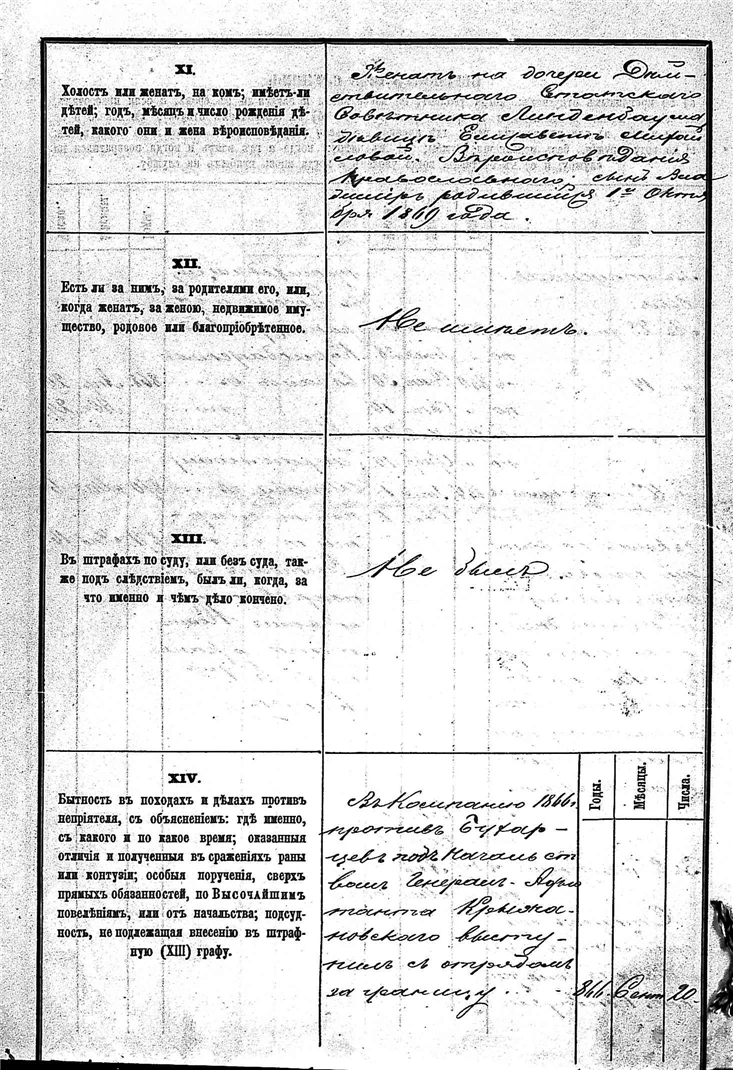 XI.
Холостъ или женатъ, на комъ; имѣетъ-ли
дѣтей; годъ, мѣсяцъ и число рожденія дѣ-
тей, какого они и жена вѣроисповѣданія.
Женатъ на дочери Дѣй-
ствительнаго Статскаго
Совѣтника Линденбаума
дѣвицѣ Елизаветѣ
ловой. Вѣроисповѣданія
православнаго сынъ Вла
димиръ родившійся 1го Октя
бря 1869 года.
XII.
Есть ли за нимъ, за родителями его, или,
когда женатъ, за женою, недвижимое иму-
щество, родовое или благопріобрѣтенное.
Не имѣетъ.
XIII.
Въ штрафахъ по суду, или безъ суда, так-
же подъ слѣдствіемъ, былъ ли, когда, за
что именно и чѣмъ дѣло кончено.
Не былъ
XIV.
Бытность въ походахъ и дѣлахъ противъ
непріятеля, съ объясненіемъ: гдѣ именно,
съ какого и по какое время; оказанныя
отличія и полученныя въ сраженіяхъ раны
или контузіи; особыя порученія, сверхъ
прямыхъ обязанностей, по Высочайшимъ
повелѣніямъ, или отъ начальства; подсуд-
ность, не подлежащая внесенію въ штраф-
ную (XIII) графу.
Въ Компанію 1866г.
противъ Бухар-
цевъ подъ Началь ст
вомъ Генералъ-Адъю
танта Крыжа-
новскаго высту-
пилъ съ отрядомъ
за границу . . -
Годы.
Мѣсяцы.
Числа.
866. Сент 20.